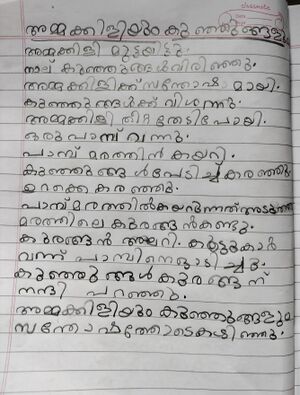 classmate
അമ്മക്കിളിയും കുഞ്ഞുങ്ങളും
അമ്മക്കിളി മുട്ടയിട്ടു.
നാല് കുഞ്ഞുങ്ങൾ വിരിഞ്ഞു.
അമ്മക്കിളിക്ക് സന്തോഷമായി.
കുഞ്ഞുങ്ങൾക്ക് വിശന്നു.
അമ്മക്കിളി തീറ്റതേടിപോയി.
ഒരു പാമ്പ് വന്നു.
പാമ്പ് മരത്തിൻ കയറി.
കുഞ്ഞുങ്ങൾ പേടിച്ച് കരഞ്ഞു.
ഉറക്കെ കരഞ്ഞു.
പാമ്പ് മരത്തിൽ കയറുന്നത് അടുത്ത
മരത്തിലെ കുരങ്ങൻ കണ്ടു.
കുരങ്ങൻ അലറി. കൂട്ടുകാർ
വന്ന് പാമ്പിനെ ഓടിച്ചു.
കുഞ്ഞുങ്ങൾ കുരങ്ങന്
നന്ദി പറഞ്ഞു.
അമ്മക്കിളിയും കുഞ്ഞുങ്ങളും
സന്തോഷത്തോടെ കഴിഞ്ഞു.